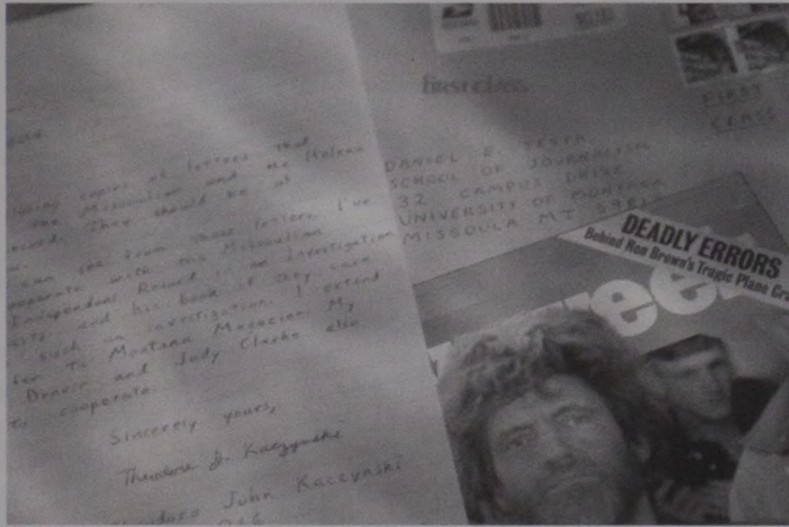 copies of letters that
the Missoulian and the Helena
They should be at
can see from those letters, I've
cooperate with the Missoulian
Independent Record in an investigation
and his book if they care
such an investigation. I extend
to Montana Magazine. My
Denver and Judy Clarke also
to cooperate.
Sincerely yours,
Theodore J. Kaczynski
Theodore John Kaczynski
046
first class
FIRST
CLASS
DANIEL E.
SCHOOL OF JOURNALISM
32 CAMPUS DRIVE
UNIVERSITY OF MONTANA
MISSOULA MT 59812
DEADLY ERRORS
Behind Ron Brown's Tragic Plane Cra
wee